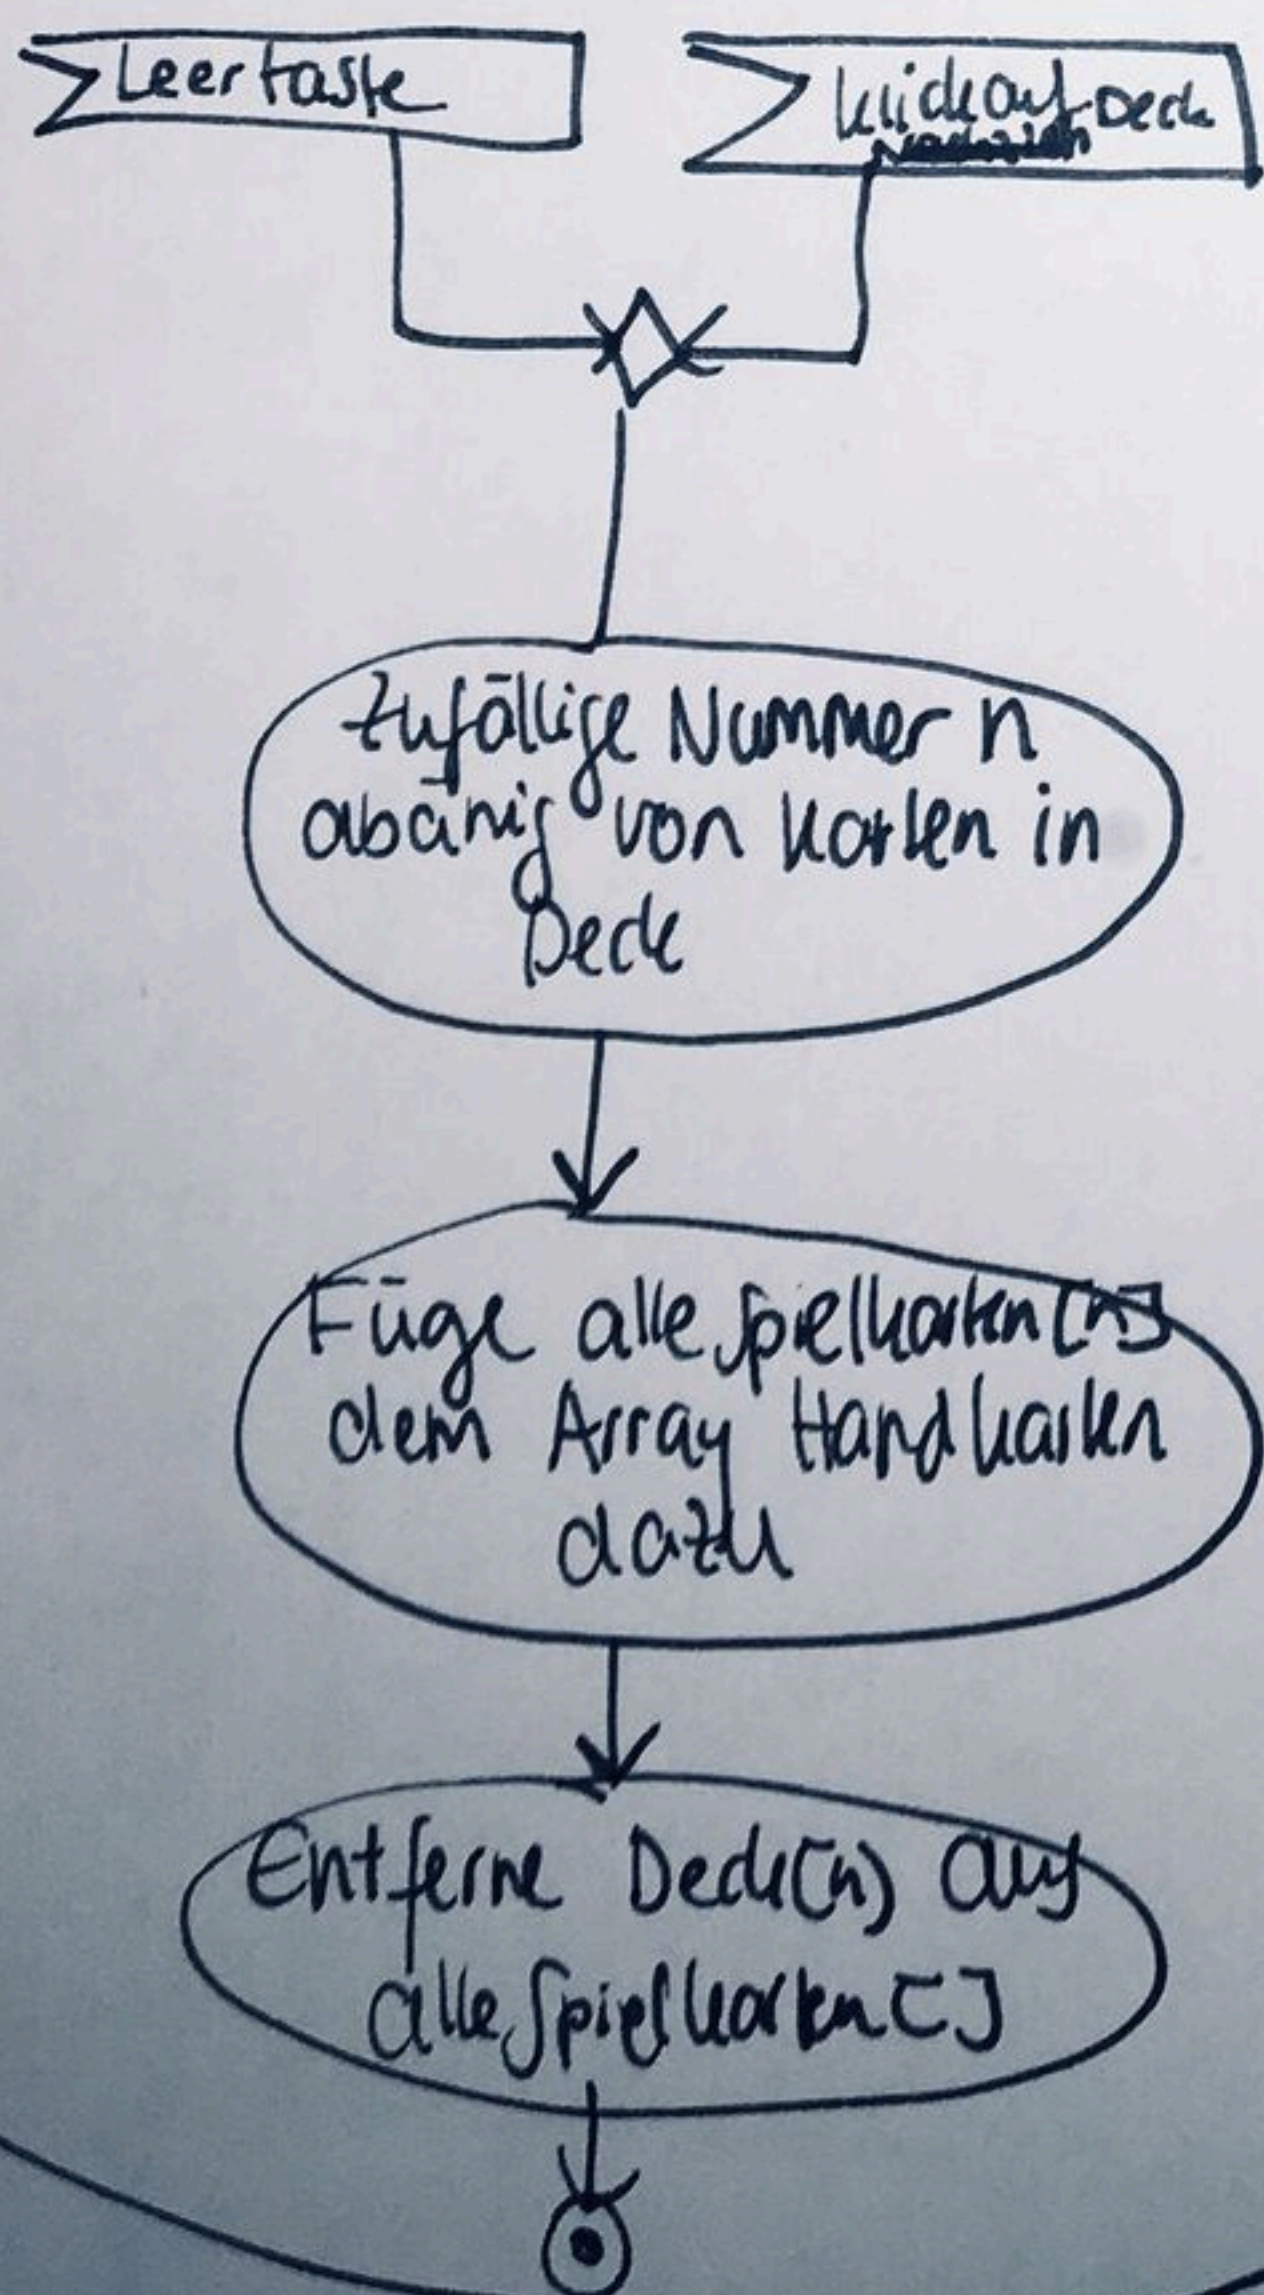 Leertaste
klick auf Deck
Zufällige Nummer n
abänig von Karten in
Deck
Füge alleSpielkarten[n]
dem Array Handkarten
dazu
Entferne Deck[n] aus
alleSpielkarten[]